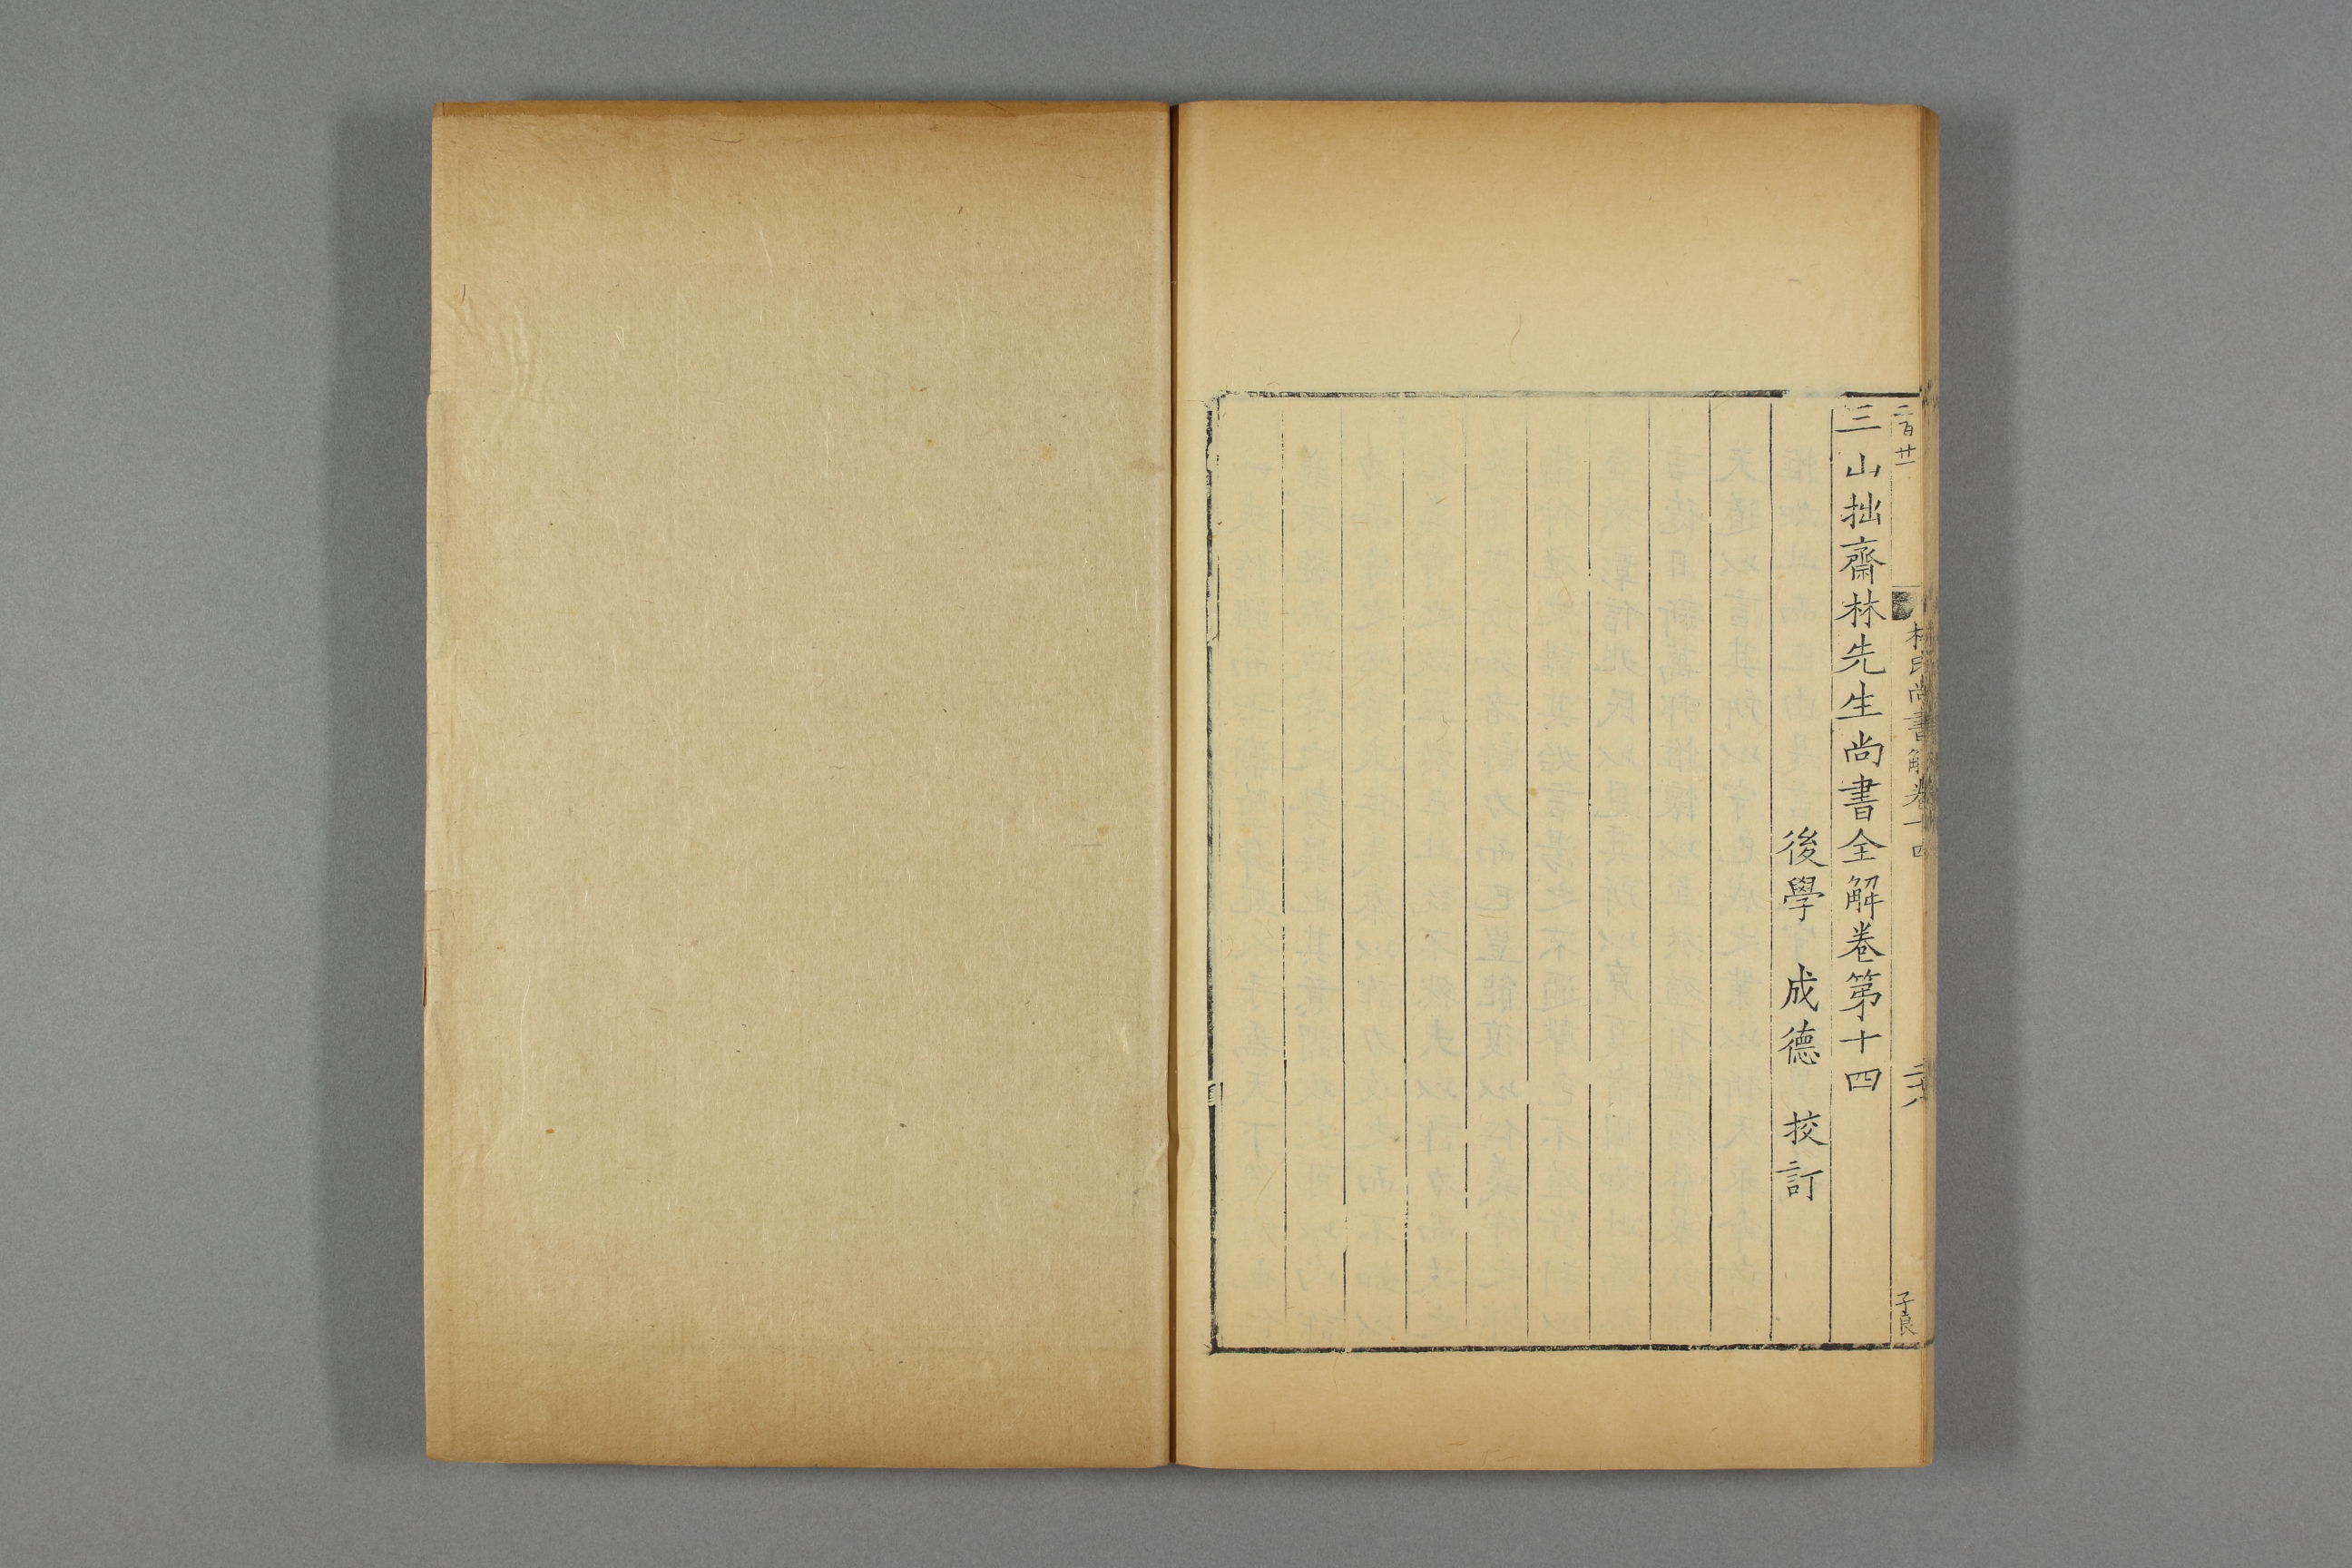 二百廿一
林氏尚書解卷十四
子良
三山拙齋林先生尚書全解卷第十四
後學 成德 挍訂